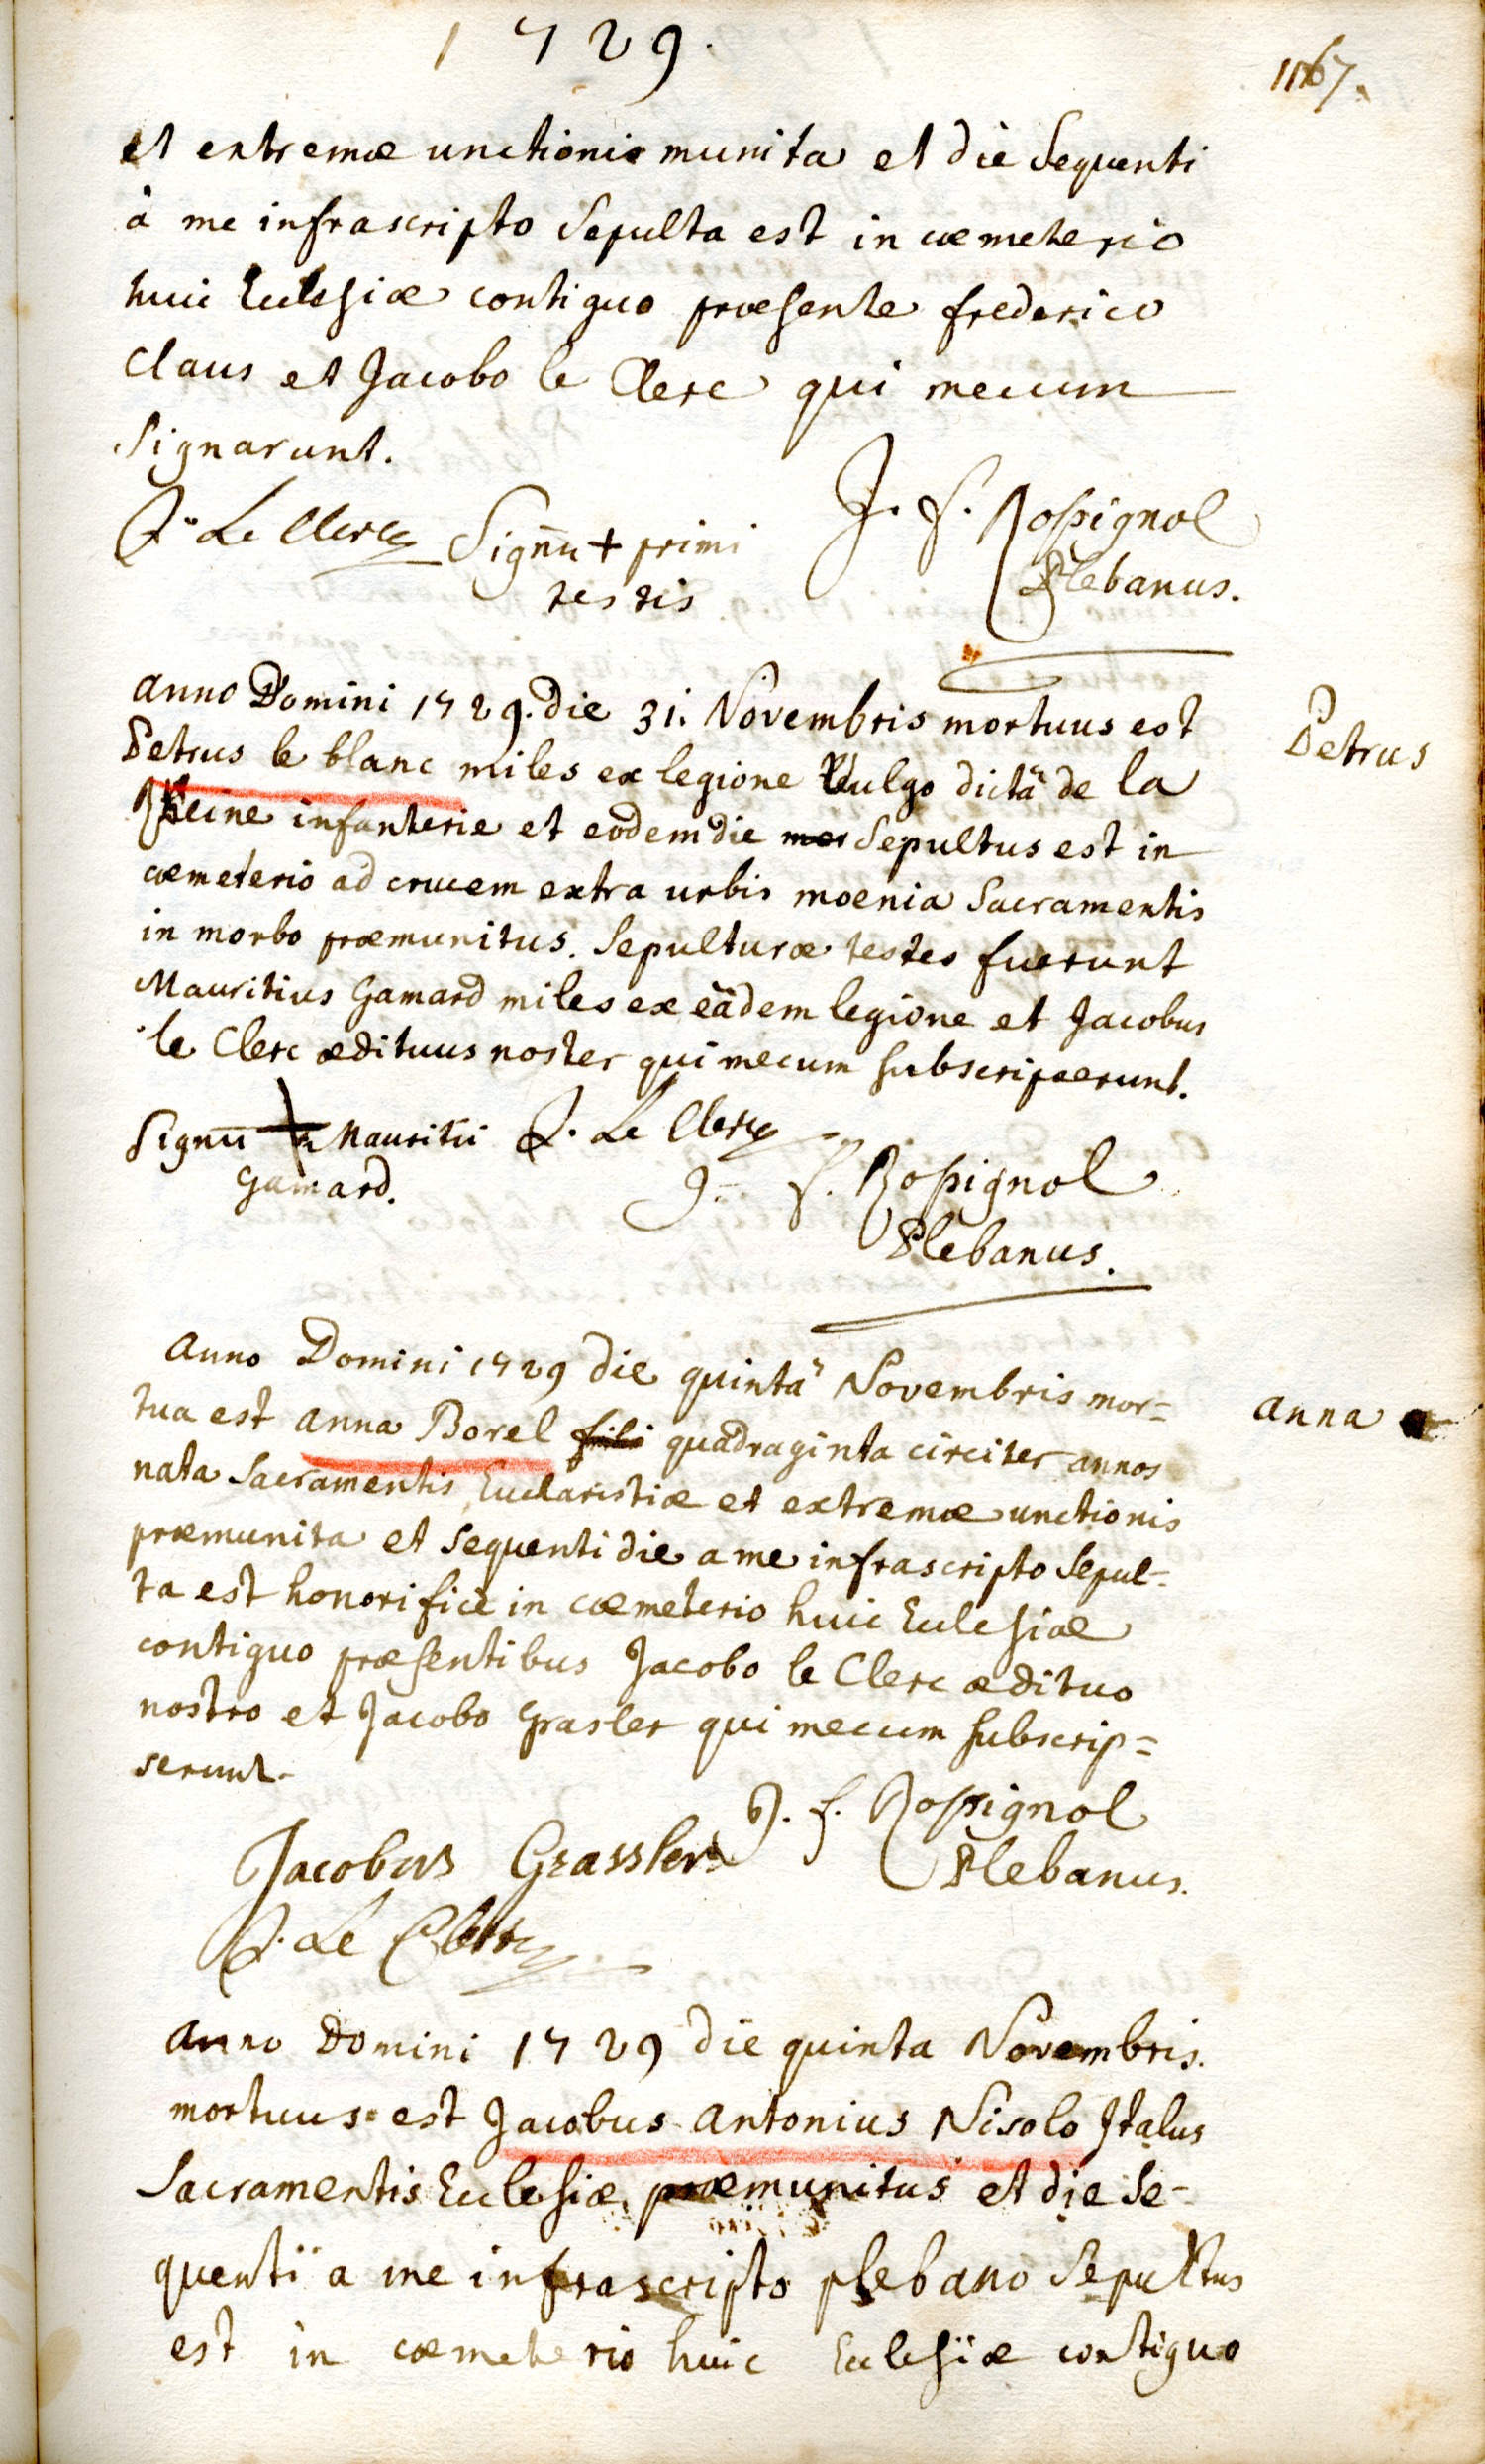 1729.
1167.
et extremæ unctionis munita et die sequenti
à me infrascripto sepulta est in cœmeterio
huic Ecclesiæ contiguo præsente frederico
Claus et Jacobo le Clerc qui mecum
signarunt.
J. Le Clerc Signū + primi
testis
J. f. Rossignol
Plebanus.
anno Domini 1729. die 31. Novembris mortuus est
Petrus
Petrus le blanc miles ex legione vulgo dictâ de la
Reine infanterie et eodem die mor sepultus est in
cœmeterio ad crucem extra urbis moenia sacramentis
in morbo præmunitus. sepulturæ testes fuerunt
Mauritius Gamard miles ex eâdem legione et Jacobus
le Clerc ædituus noster qui mecum subscripserunt.
Signū + Mauritii J. Le Clerc
Gamard.
J. f. Rossignol
Plebanus.
anno Domini 1729 die quintâ Novembris mor=
anna
tua est anna Borel fili quadraginta circiter annos
nata sacramentis Eucharistiæ et extremæ unctionis
præmunita et sequenti die a me infrascripto sepul-
ta est honorificè in cœmeterio huic Ecclesiæ
contiguo præsentibus Jacobo le Clerc ædituo
nostro et Jacobo Grasler qui mecum subscrip=
serunt.
J. f. Rossignol
Plebanus.
Jacobus Grassler
J. Le Clerc
anno Domini 1729 die quinta Novembris.
mortuus est Jacobus antonius Nisolo Italus
sacramentis Ecclesiæ præmunitus et die se-
quenti a me infrascripto plebano sepultus
est in cœmeterio huic Ecclesiæ contiguo